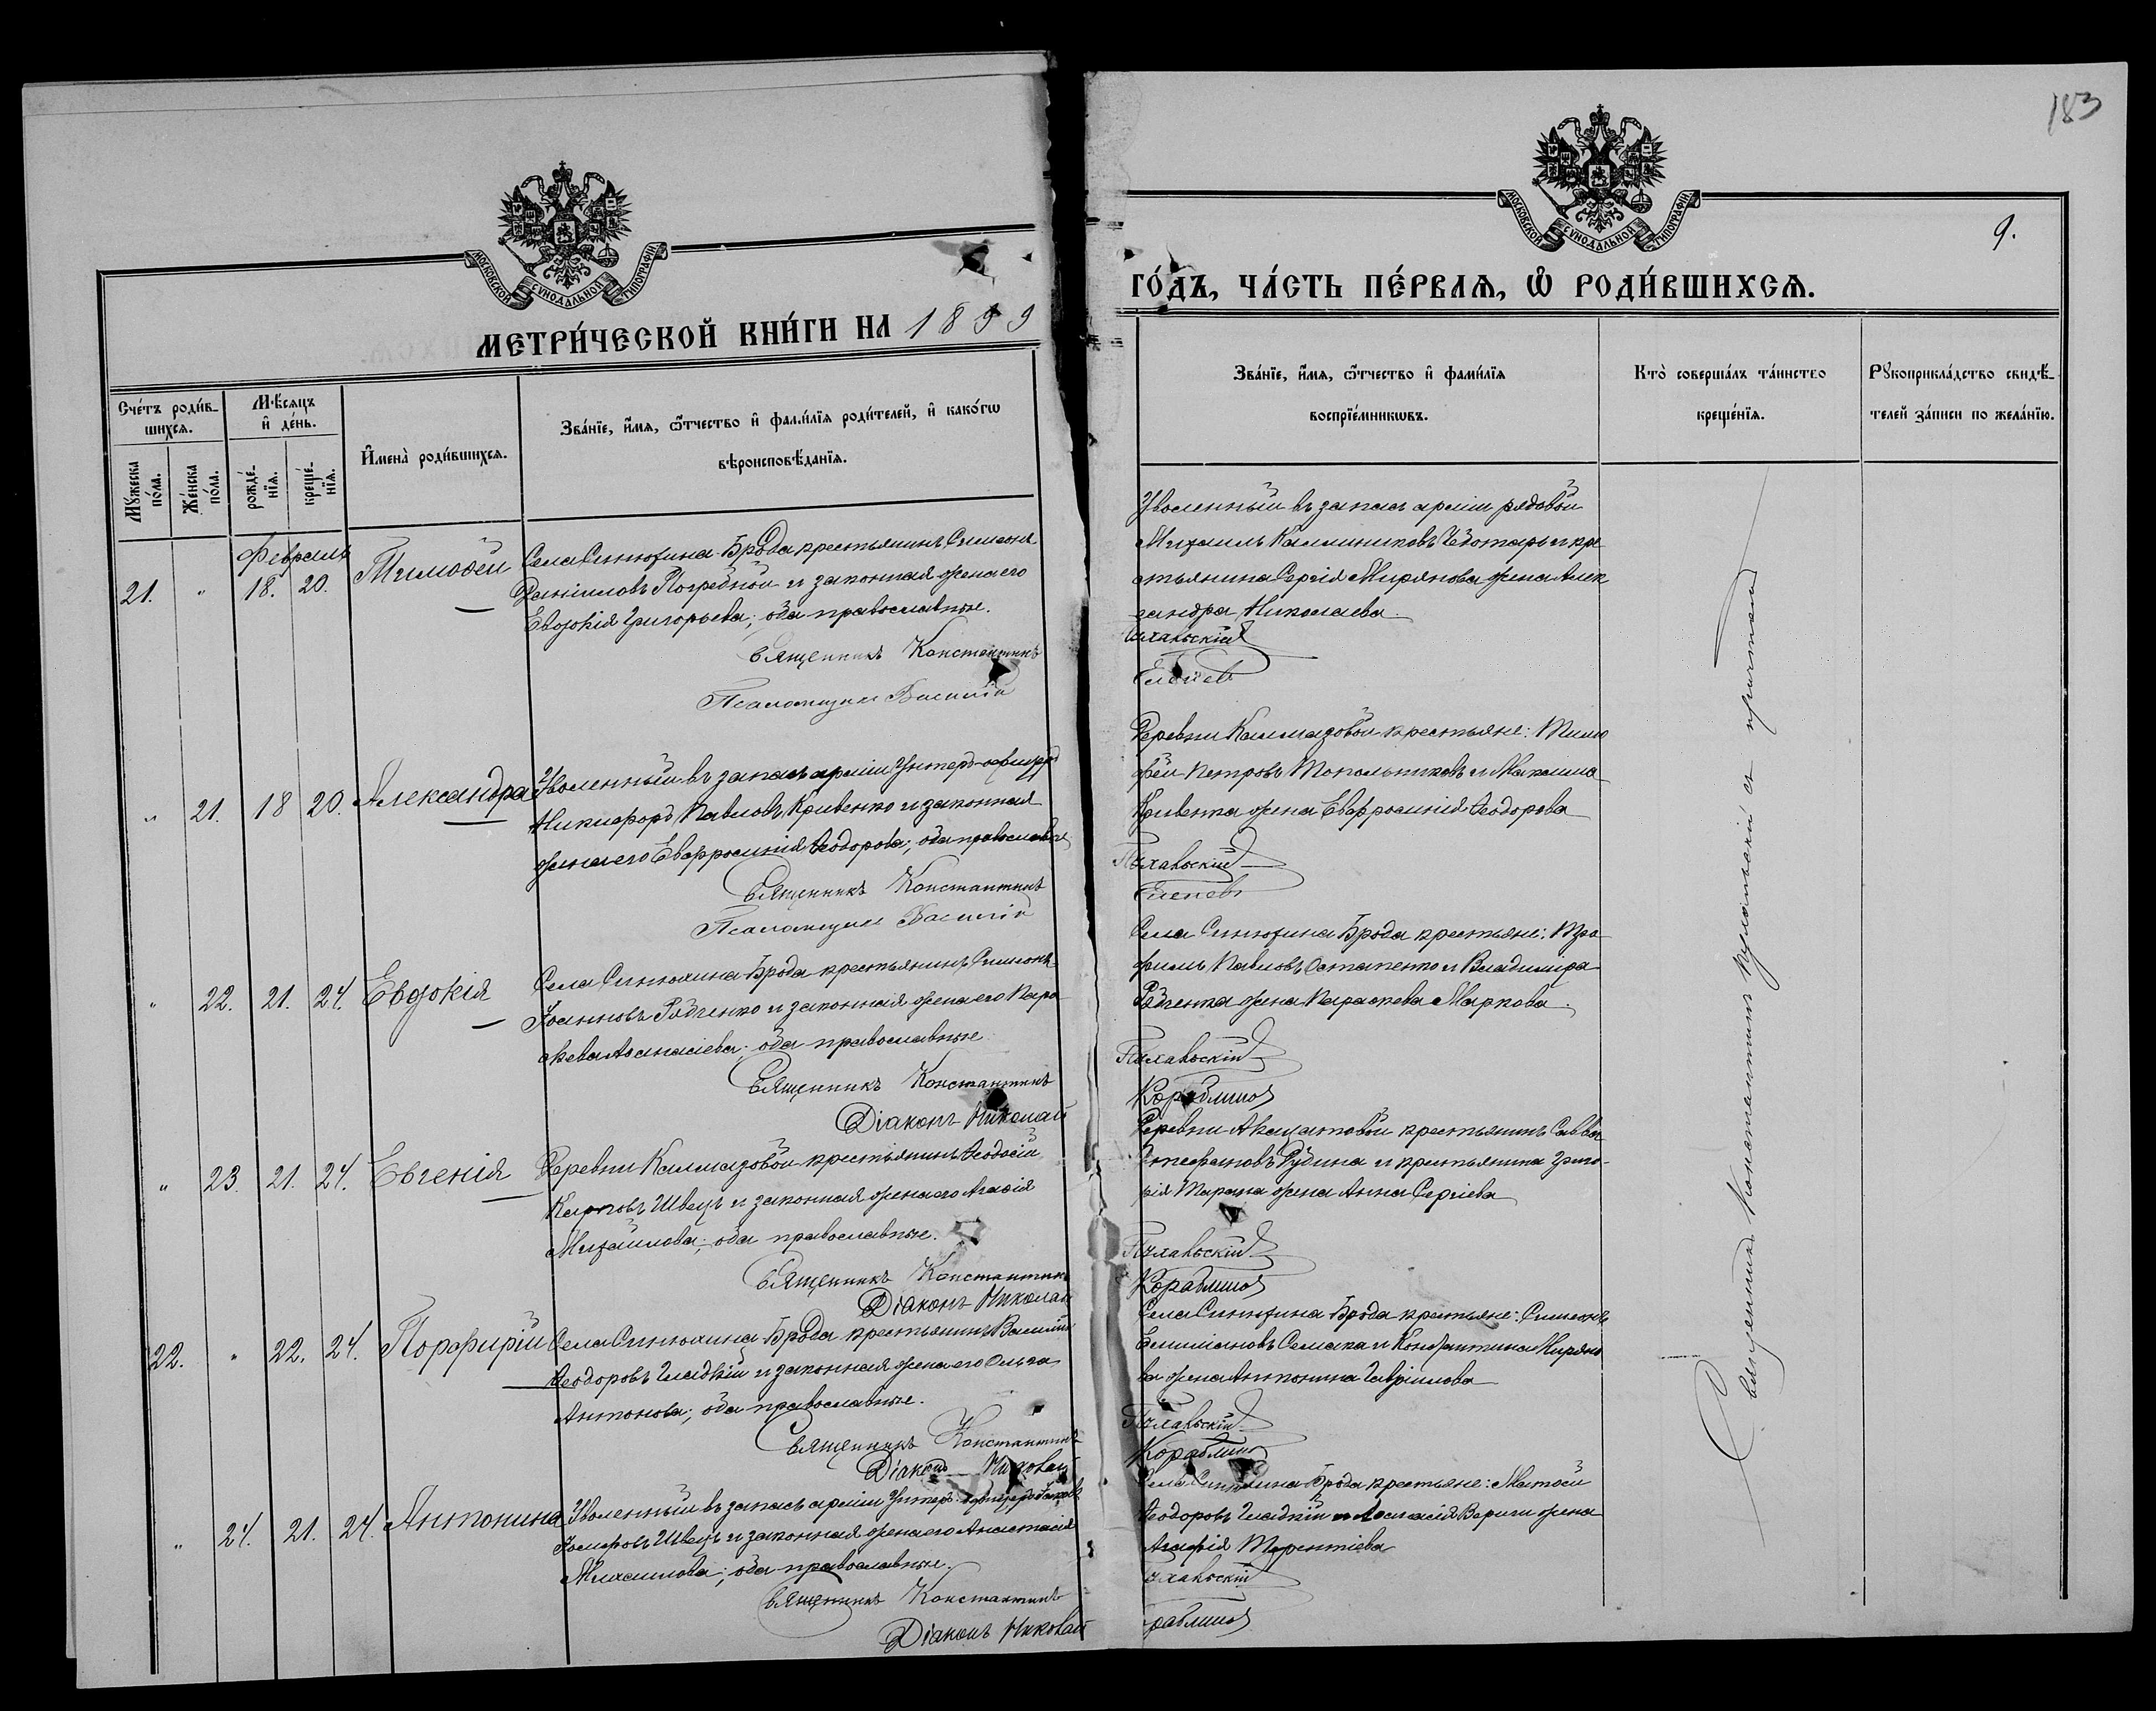 183
9.
МОСКОВСКОЙ СѴНОДАЛЬНОЙ ТИПОГРАФІИ
МОСКОВСКОЙ СѴНОДАЛЬНОЙ ТИПОГРАФІИ
МЕТРИ́ЧЕСКОЙ КНИ́ГИ НА 1899
ГО́ДЪ, ЧА́СТЬ ПЕ́РВАѦ, Ѿ РОДИ́ВШИХСѦ.
Сче́тъ роди́в-
шихсѧ.
Мꙋ́жеска по́ла.
Же́нска по́ла.
Мѣ́сѧцъ и҆ де́нь.
рожде́-
нїѧ.
креще́-
нїѧ.
И҆мена̀ роди́вшихсѧ.
Зва́нїе, и҆́мѧ, ѻ҆́тчество и҆ фами́лїѧ роди́телей, и҆ како́гѡ
вѣроисповѣ́данїѧ.
Зва́нїе, и҆́мѧ, ѻ҆́тчество и҆ фами́лїѧ
воспрїе́мникѡвъ.
Кто̀ соверша́лъ та́инство
креще́нїѧ.
Рꙋкоприкла́дство свидѣ́-
телей за́писи по жела́нїю.
Февраль
21. " 18. 20. Тимоѳей
Села Синюхина-Брода крестьянинъ Симеонъ
Даніиловъ Погребной и законная жена его
Евдокія Григорьева; оба православные.
Священникъ Константинъ
Псаломщикъ Василій
Уволенный въ запасъ арміи рядовой
Михаилъ Каллиниковъ Чеботарь и кре
стьянина Сергія Мирянова жена Алек
сандра Николаева
" 21. 18 20. Александра
Уволенный въ запасъ арміи Унтеръ-офицеръ
Никифоръ Павловъ Кривенко и законная
жена его Евфросинія Ѳеодорова; оба православные
Священникъ Константинъ
Псаломщикъ Василій
Деревни Калмазовой крестьяне: Тимо
фей Петровъ Топольниковъ и Максима
Кривенка жена Евфросинія Ѳеодорова
" 22. 21. 24. Евдокія
Села Синюхина-Брода крестьянинъ Симеонъ
Іоанновъ Рябченко и законная жена его Пара
скева Аѳанасіева; оба православные
Священникъ Константинъ
Діаконъ Николай
Села Синюхина Брода крестьяне: Тро
фимъ Павловъ Остапенко и Владиміра
Рябченка жена Параскева Маркова.
Кораблиновъ
" 23. 21. 24. Евгенія
Деревни Калмазовой крестьянинъ Ѳеодосій
Карповъ Швецъ и законная жена его Агафія
Михайлова; оба православные.
Священникъ Константинъ
Діаконъ Николай
Деревни Аксютовой крестьянинъ Савва
Стефановъ Рудина и крестьянина Григо-
рія Тарана жена Анна Сергіева
Кораблиновъ
22. " 22. 24. Порфирій
Села Синюхина-Брода крестьянинъ Василій
Ѳеодоровъ Гладкій и законная жена его Ольга
Антонова; оба православные.
Священникъ Константинъ
Діаконъ Николай
Села Синюхина Брода крестьяне: Симеонъ
Емиліановъ Семака и Константина Миряно
ва жена Антонина Гавріилова
" 24. 21. 24. Антонина
Уволенный въ запасъ арміи Унтеръ-офицеръ Іаковъ
Іосифовъ Швецъ и законная жена его Анастасія
Михаилова; оба православные.
Священникъ Константинъ
Діаконъ Николай
Села Синюхина Брода крестьяне: Матѳей
Ѳеодоровъ Гладкій и Аѳанасія Вериги жена
Агафія Терентіева
Священникъ Константинъ съ причтомъ